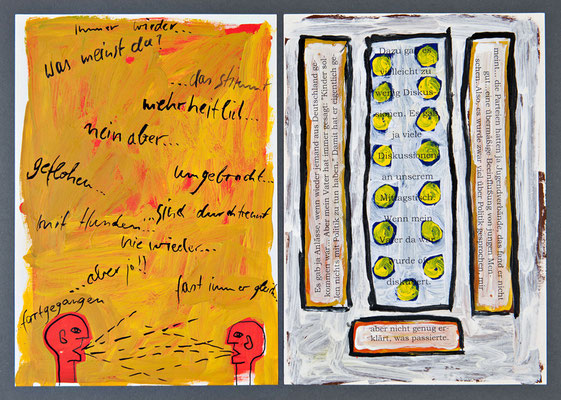 immer wieder...
was meinst du?
...das stimmt
mehrheitlich...
nein aber...
geflohen...
umgebracht...
mit Hunden...
...sind durchtrennt
nie wieder...
...aber ja!!
fast immer gleich
fortgegangen
Es gab ja Anlässe, wenn wieder jemand aus Deutschland ge-
kommen war... Aber mein Vater hat immer gesagt: "Kinder sol-
len nichts mit Politik zu tun haben." Damit hat er eigentlich ge-
Dazu gab es
vielleicht zu
wenig Diskus-
sionen. Es gab
ja viele
Diskussionen
an unserem
Mittagstisch.
Wenn mein
Vater da war,
wurde oft
diskutiert,
meint... die Parteien hatten ja Jugendverbände, das fand er nicht
gut... eine übermäßige Beeinflussung von jungen Men-
schen. Also, es wurde zwar viel über Politik gesprochen, mir
aber nicht genug er-
klärt, was passierte.